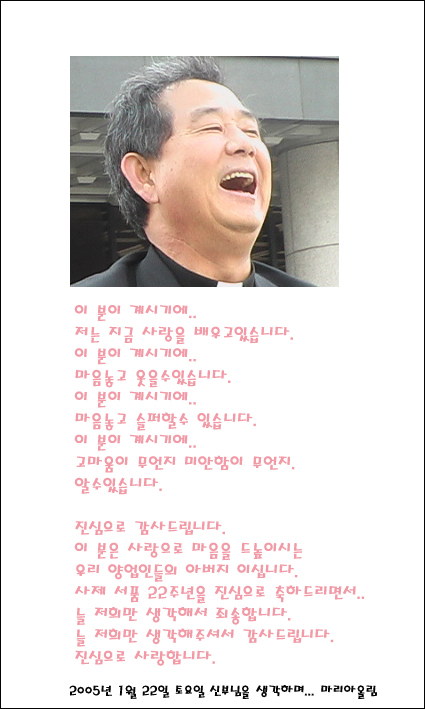 이 분이 계시기에..
저는 지금 사랑을 배우고있습니다.
이 분이 계시기에..
마음놓고 웃을수있습니다.
이 분이 계시기에..
마음놓고 슬퍼할수 있습니다.
이 분이 계시기에..
고마움이 무언지 미안함이 무언지.
알수있습니다.
진심으로 감사드립니다.
이 분은 사랑으로 마음을 드높이시는
우리 양업인들의 아버지 이십니다.
사제 서품 22주년을 진심으로 축하드리면서..
늘 저희만 생각해서 죄송합니다.
늘 저희만 생각해주셔서 감사드립니다.
진심으로 사랑합니다.
2005년 1월 22일 토요일 신부님을 생각하며... 마리아올림